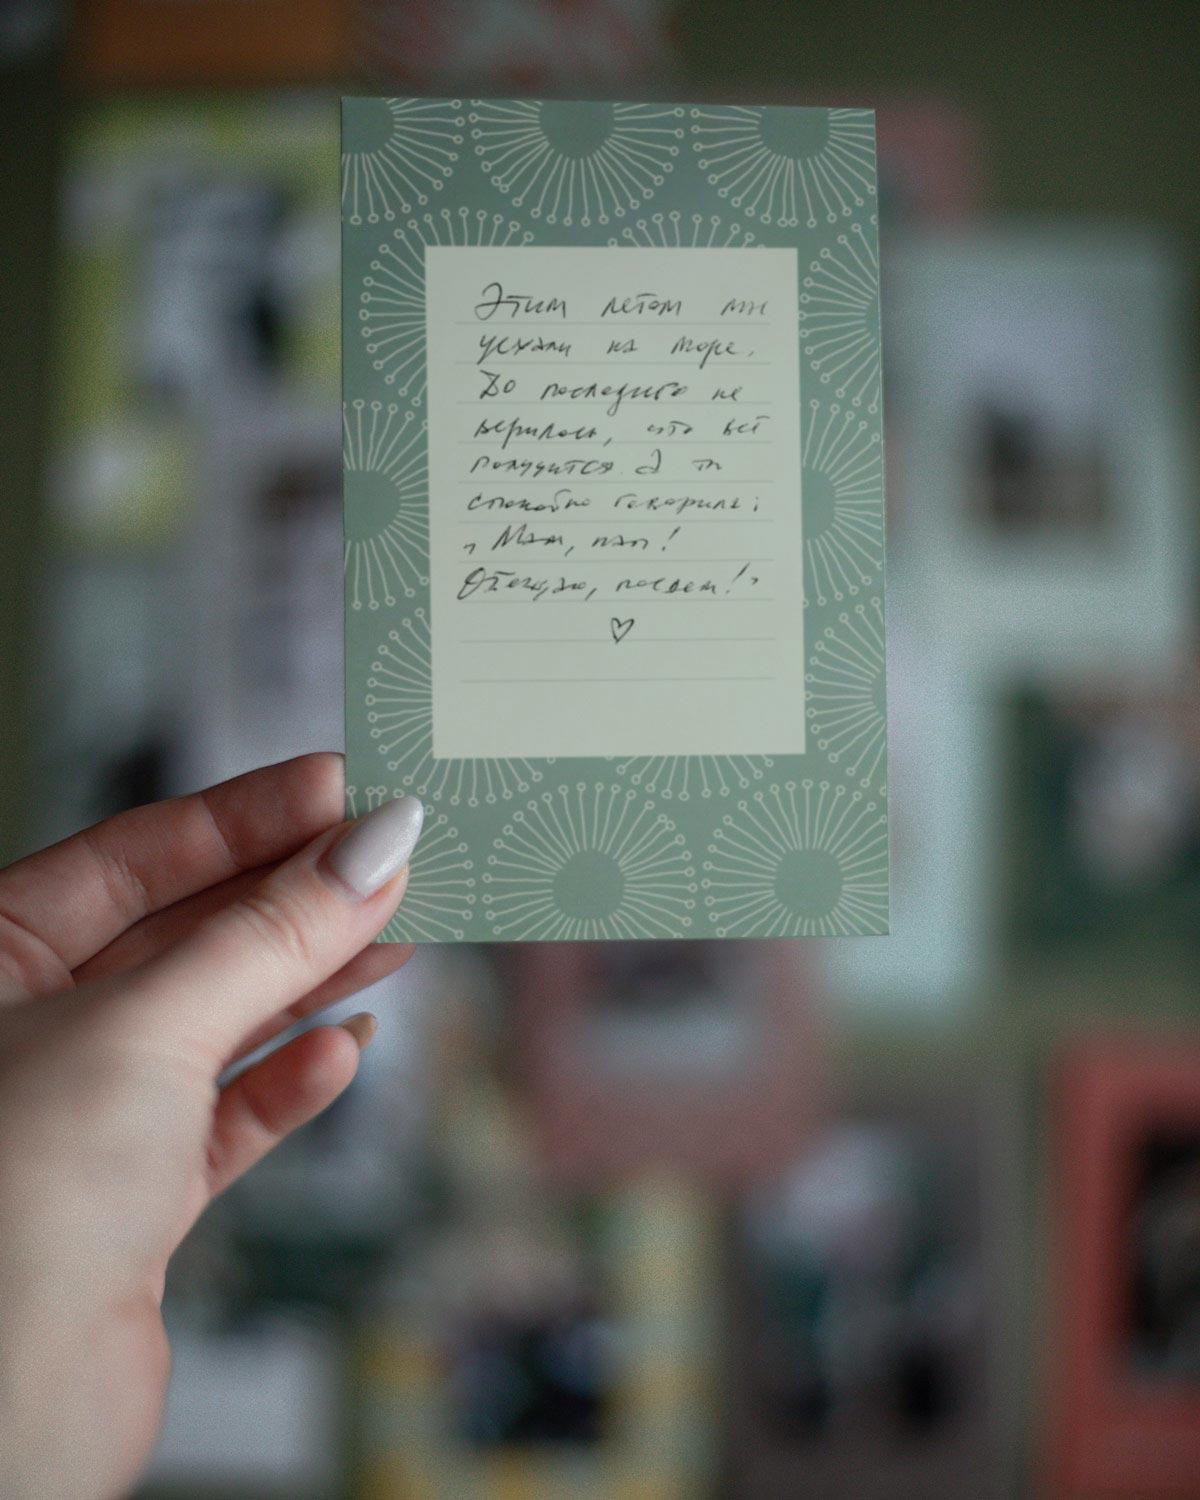 Этим летом мы
уехали на море.
До последнего не
верилось, что всё
получится. А ты
спокойно говорила:
„Мам, пап!
Обещаю, поедем!"